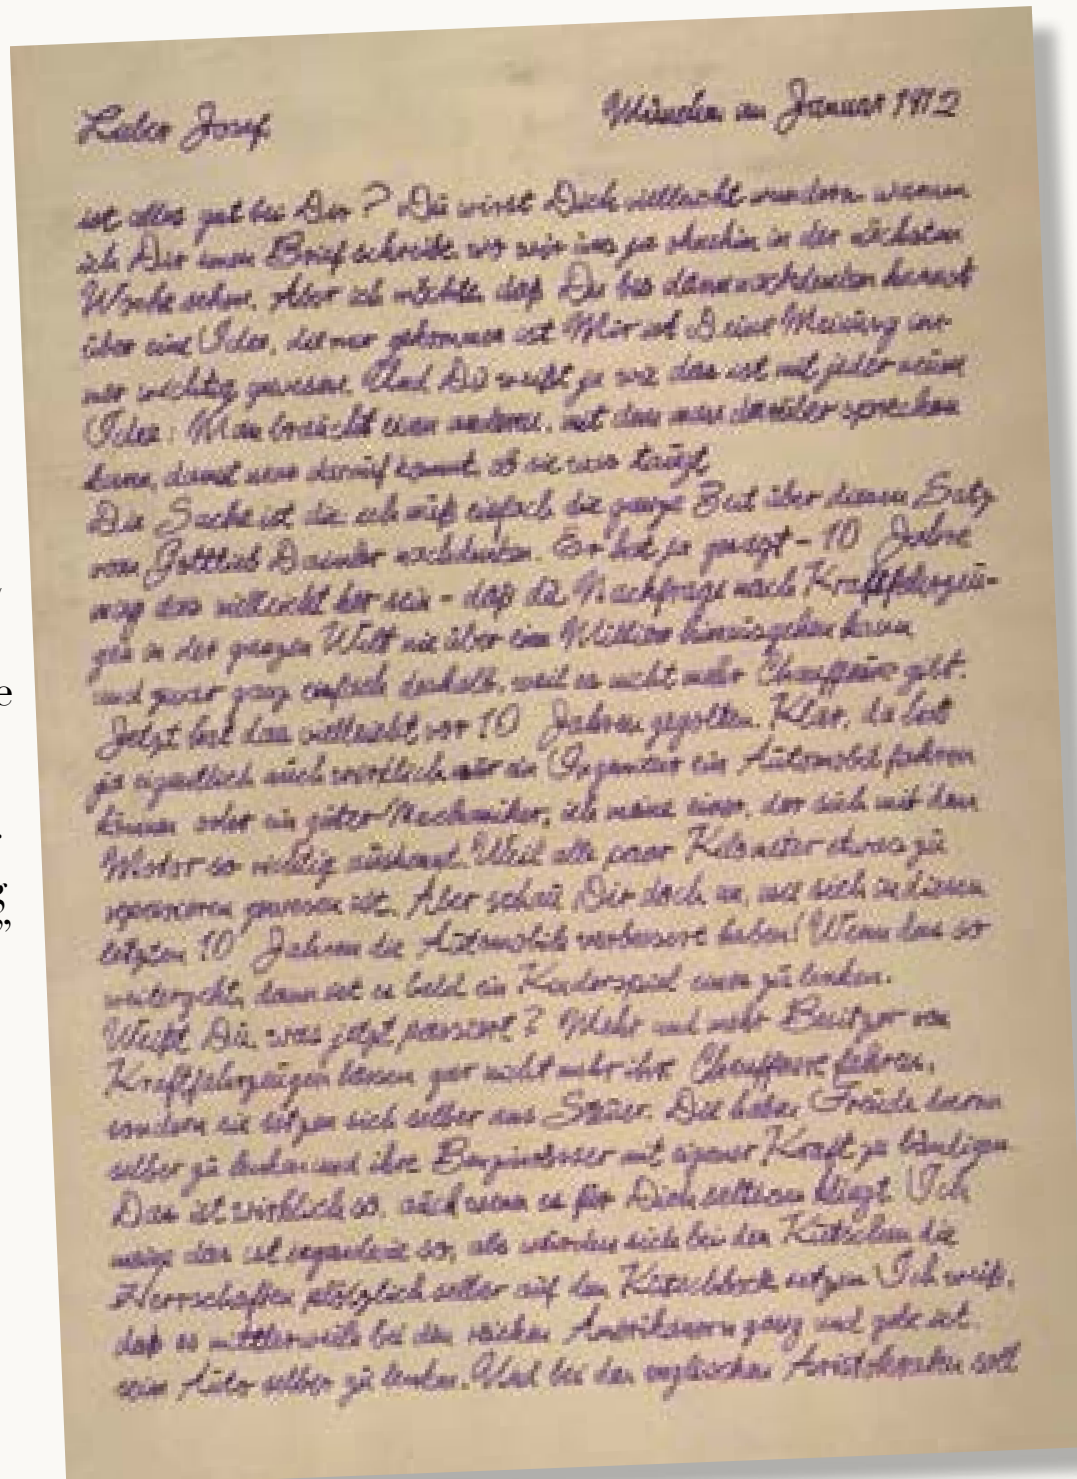 Lieber Josef,
München im Januar 1912
ist alles gut bei Dir? Du wirst Dich vielleicht wundern, warum
ich Dir einen Brief schreibe, wo wir uns ja ohnehin in der nächsten
Woche sehen. Aber ich möchte, daß Du bis dann nachdenken kannst
über eine Idee, die mir gekommen ist. Mir ist Deine Meinung im-
mer wichtig gewesen. Und Du weißt ja wie das ist mit jeder neuen
Idee: Man braucht einen anderen, mit dem man darüber sprechen
kann, damit man darauf kommt, ob sie was taugt.
Die Sache ist die, ich muß einfach die ganze Zeit über diesen Satz
von Gottlieb Daimler nachdenken. Er hat ja gesagt – 10 Jahre
mag das vielleicht her sein – daß die Nachfrage nach Kraftfahrzeu-
gen in der ganzen Welt nie über eine Million hinausgehen kann
und zwar ganz einfach deshalb, weil es nicht mehr Chauffeure gibt.
Jetzt hat das vielleicht vor 10 Jahren gegolten. Klar, da hat
ja eigentlich auch wirklich nur ein Ingenieur ein Automobil fahren
können oder ein guter Mechaniker, ich meine einer, der sich mit dem
Motor so richtig auskennt. Weil alle paar Kilometer etwas zu
reparieren gewesen ist. Aber schau Dir doch an, wie sich in diesen
letzten 10 Jahren die Automobile verbessert haben! Wenn das so
weitergeht, dann ist es bald ein Kinderspiel einen zu lenken.
Weißt Du, was jetzt passiert? Mehr und mehr Besitzer von
Kraftfahrzeugen lassen gar nicht mehr ihre Chauffeure fahren,
sondern sie setzen sich selber ans Steuer. Die haben Freude daran
selber zu lenken und ihre Benzinrösser mit eigener Kraft zu bändigen.
Das ist wirklich so, auch wenn es für Dich seltsam klingt. Ich
meine das ist irgendwie so, als würden sich bei den Kutschen die
Herrschaften plötzlich selber auf den Kutschbock setzen. Ich weiß,
daß es mittlerweile bei den reichen Amerikanern gang und gäbe ist,
sein Auto selber zu lenken. Und bei den englischen Aristokraten soll
e
g
”